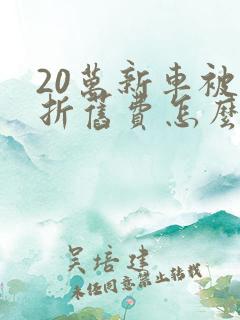 20萬新車被
折舊費怎麼
吳培建
未经同意禁止转载